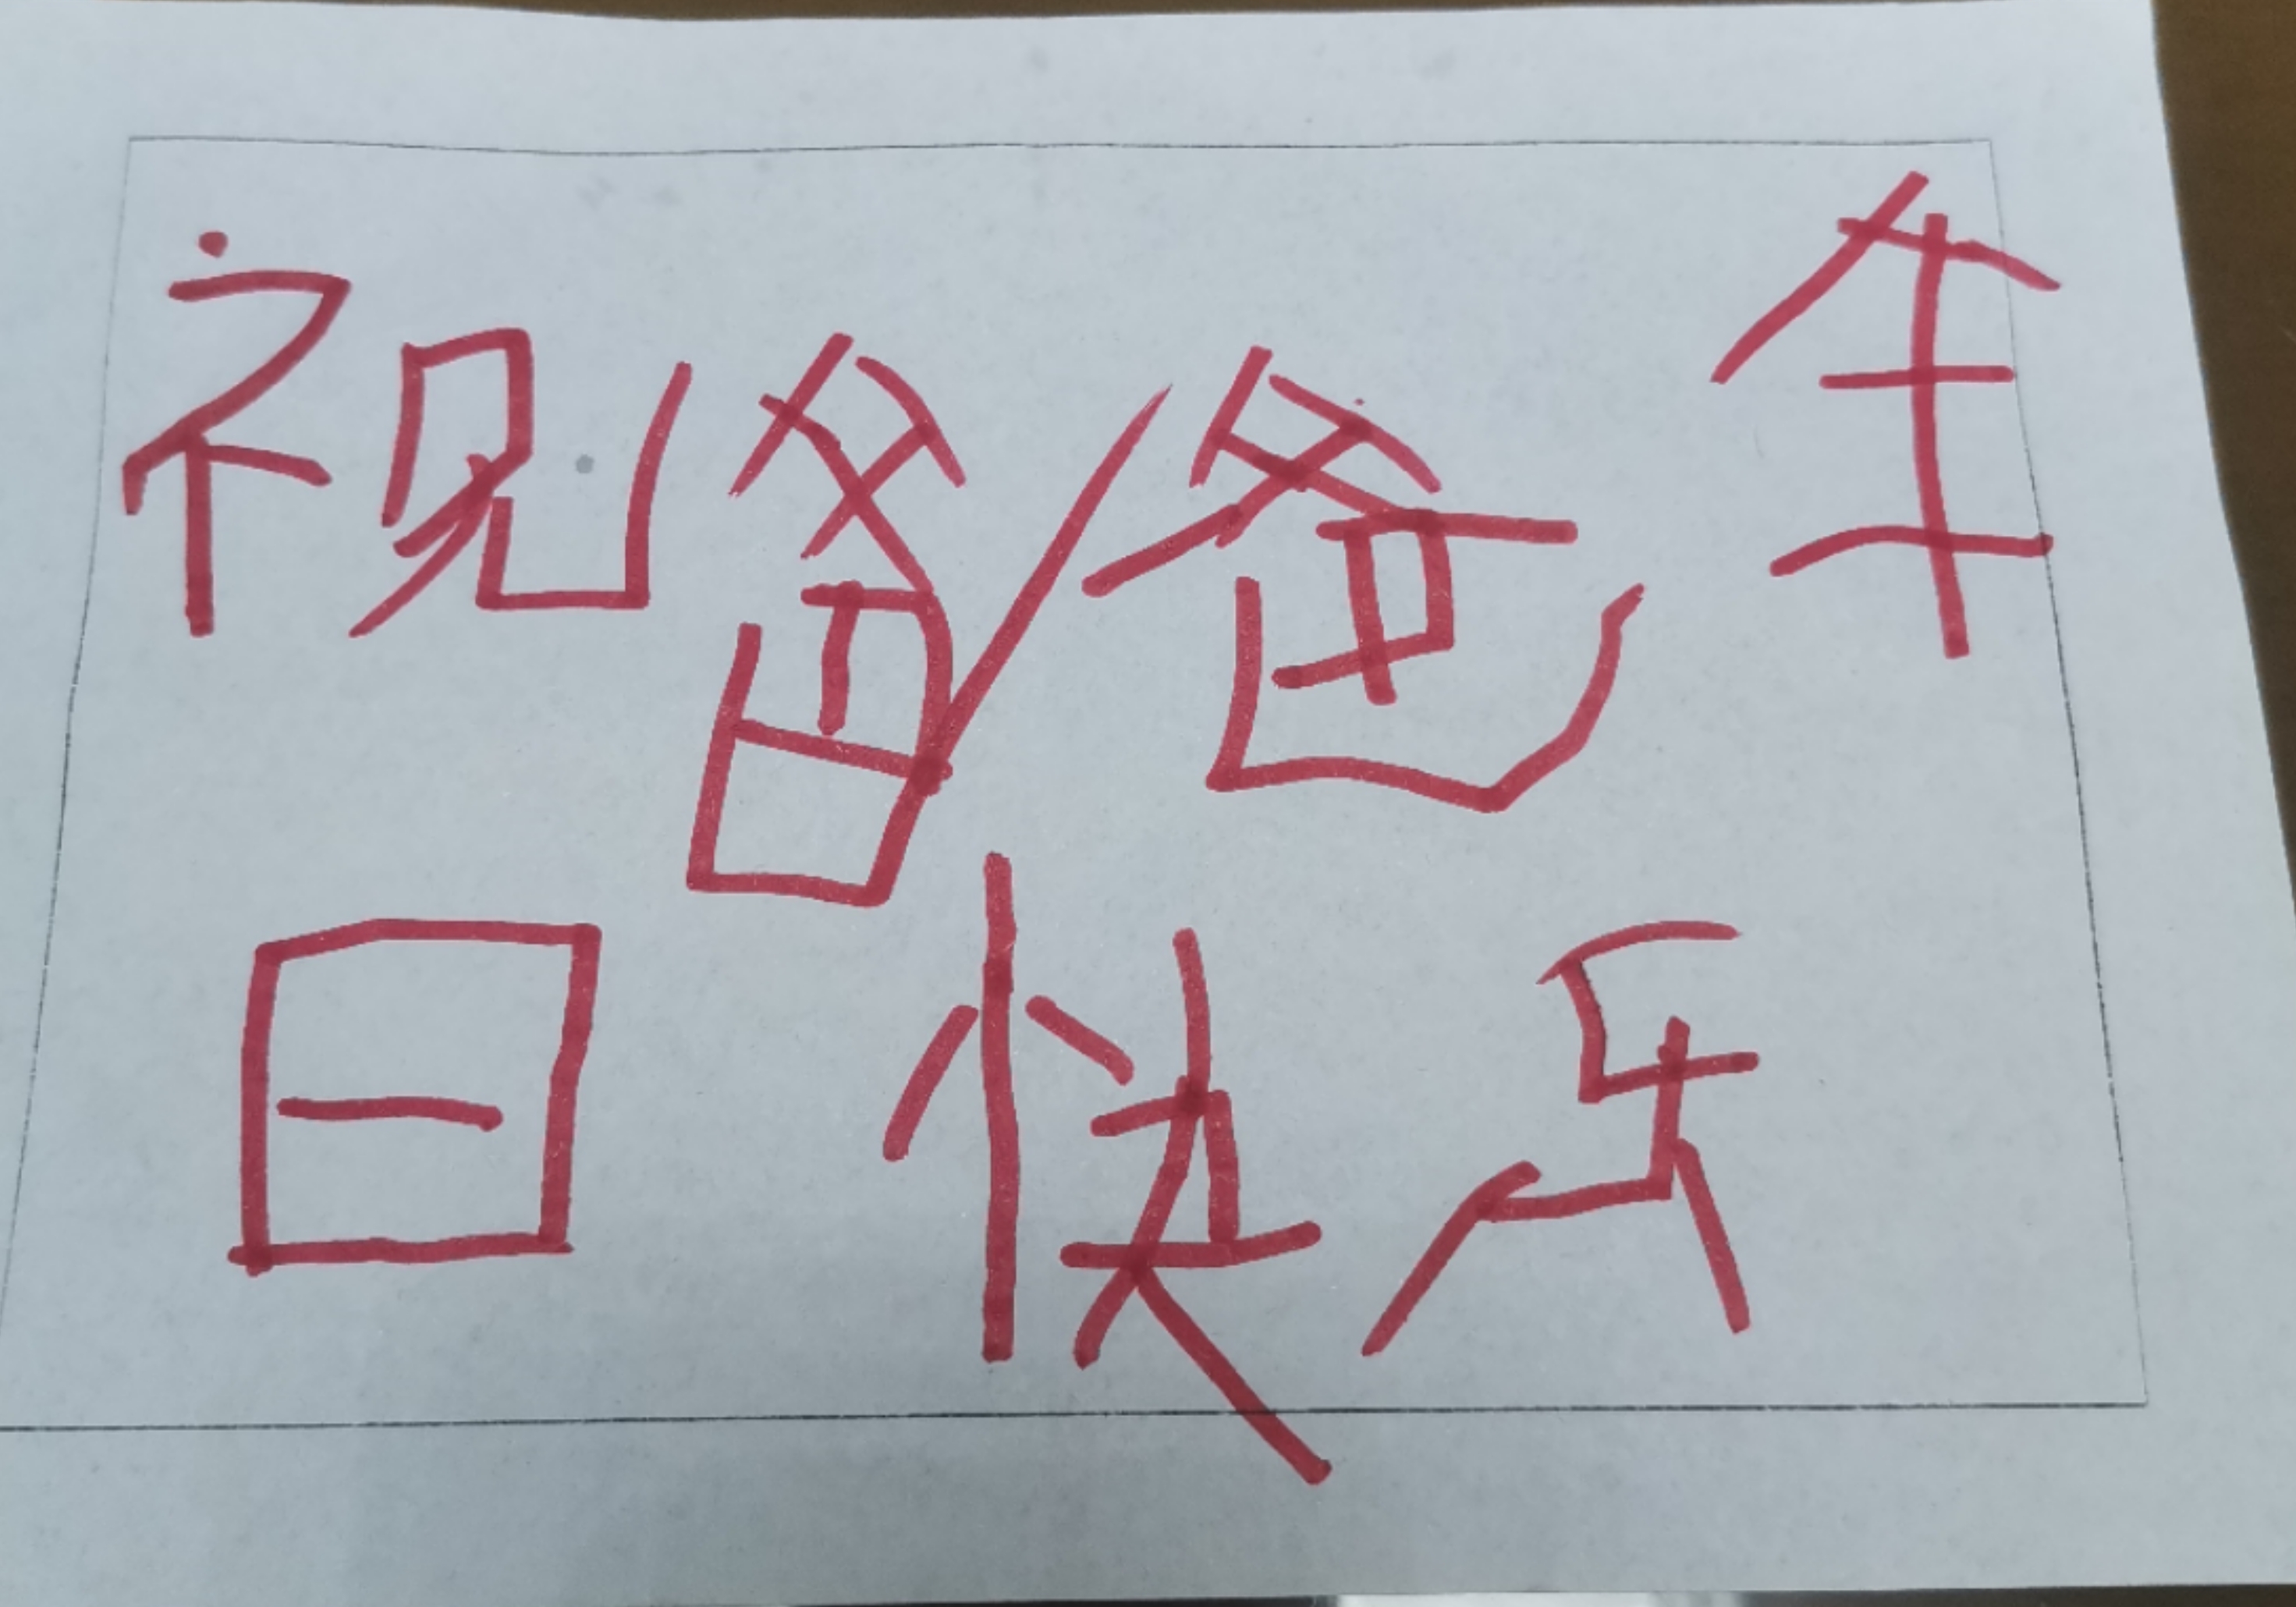 祝爸爸生
日快乐